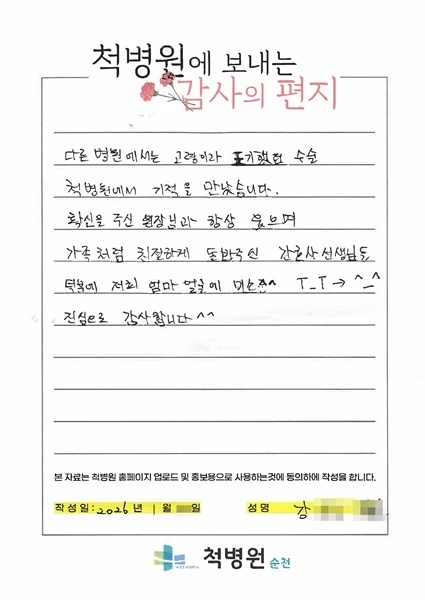 척병원에 보내는
감사의 편지
다른 병원에서는 고령이라 포기했던 수술
척병원에서 기적을 만났습니다.
확신을 주신 원장님과 항상 웃으며
가족처럼 친절하게 돌봐주신 간호사선생님들
덕분에 저희 엄마 얼굴에 미소^^ T_T → ^_^
진심으로 감사합니다 ^^
본 자료는 척병원 홈페이지 업로드 및 홍보용으로 사용하는것에 동의하에 작성을 합니다.
작성일: 2026년 1월 일 성명 강
척병원 순천